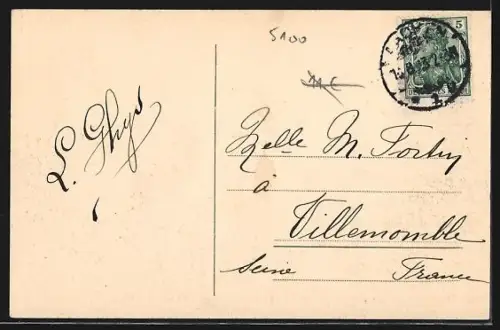 5100
L. Ghys
5
AACHEN
1
Melle M. Fortin
à
Villemomble
Seine France